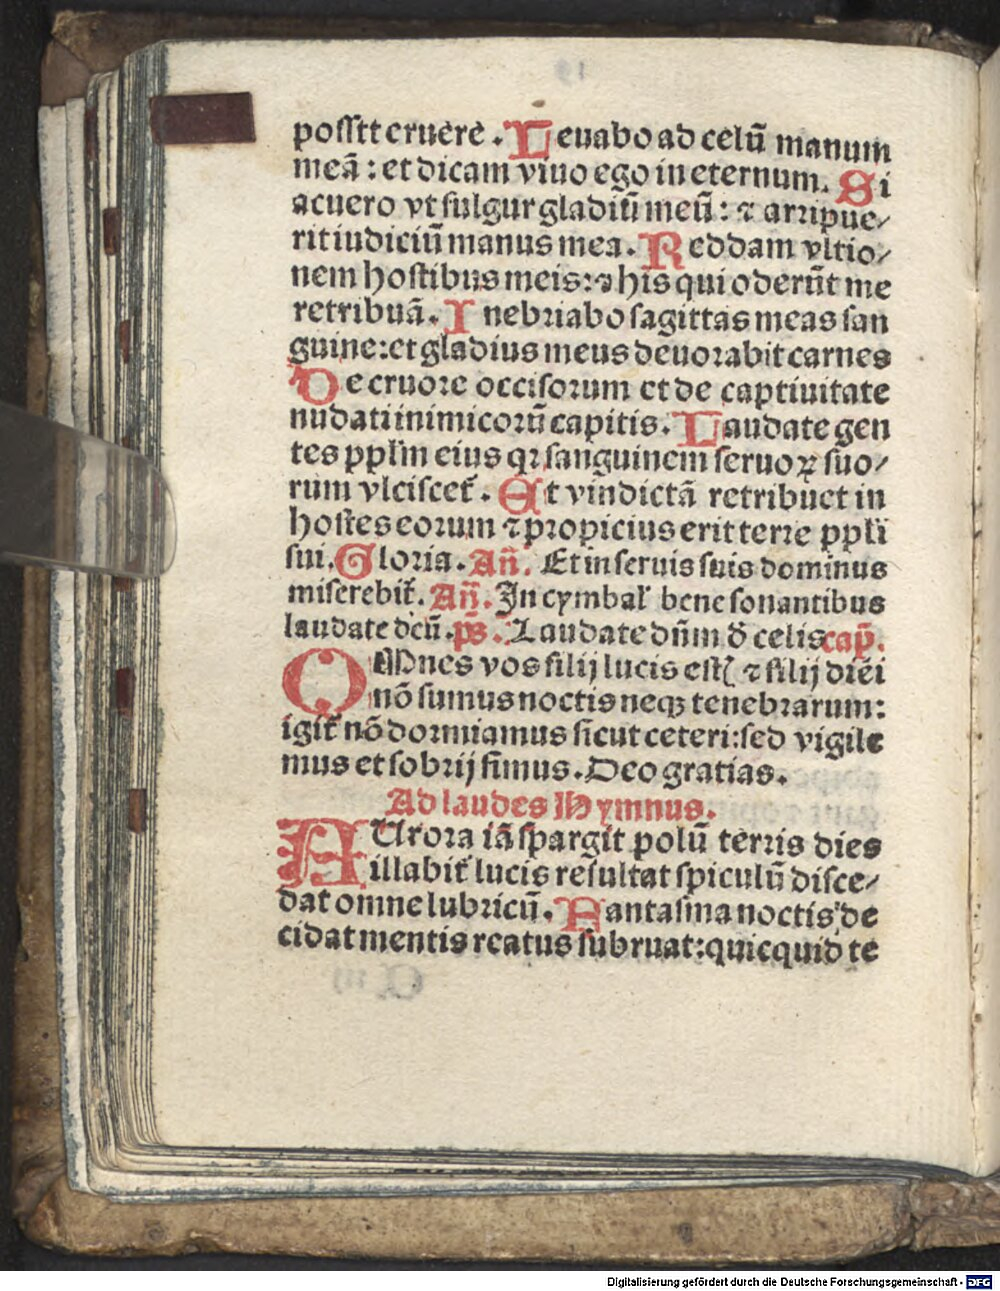 possit eruere. Leuabo ad celū manum
meā: et dicam viuo ego in eternum. Si
acuero vt fulgur gladiū meū: ⁊ arripue/
rit iudiciū manus mea. Reddam vltio/
nem hostibus meis: ⁊ his qui oderūt me
retribuā. Inebriabo sagittas meas san
guine: et gladius meus deuorabit carnes
De cruore occisorum et de captiuitate
nudati inimicorū capitis. Laudate gen
tes pplm̄ eius qꝛ sanguinem seruoꝝ suo/
rum vlciscet᷑. Et vindictā retribuet in
hostes eorum ⁊ propicius erit terre ppl̄i
sui. Gloria. Añ. Et in seruis suis dominus
miserebit᷑. Añ. In cymbal̓ bene sonantibus
laudate deū. ps̄. Laudate dn̄m d̄ celis cap̄.
OMnes vos filij lucis est{ ⁊ filij diei
nō sumus noctis neqꝫ tenebrarum:
igit᷑ nō dormiamus sicut ceteri: sed vigile
mus et sobrij simus. Deo gratias.
Ad laudes Hymnus.
AUrora iā spargit polū terris dies
illabit᷑ lucis resultat spiculū disce/
dat omne lubricū. Fantasma noctis de
cidat mentis reatus subruat: quicquid te
Digitalisierung gefördert durch die Deutsche Forschungsgemeinschaft - DFG